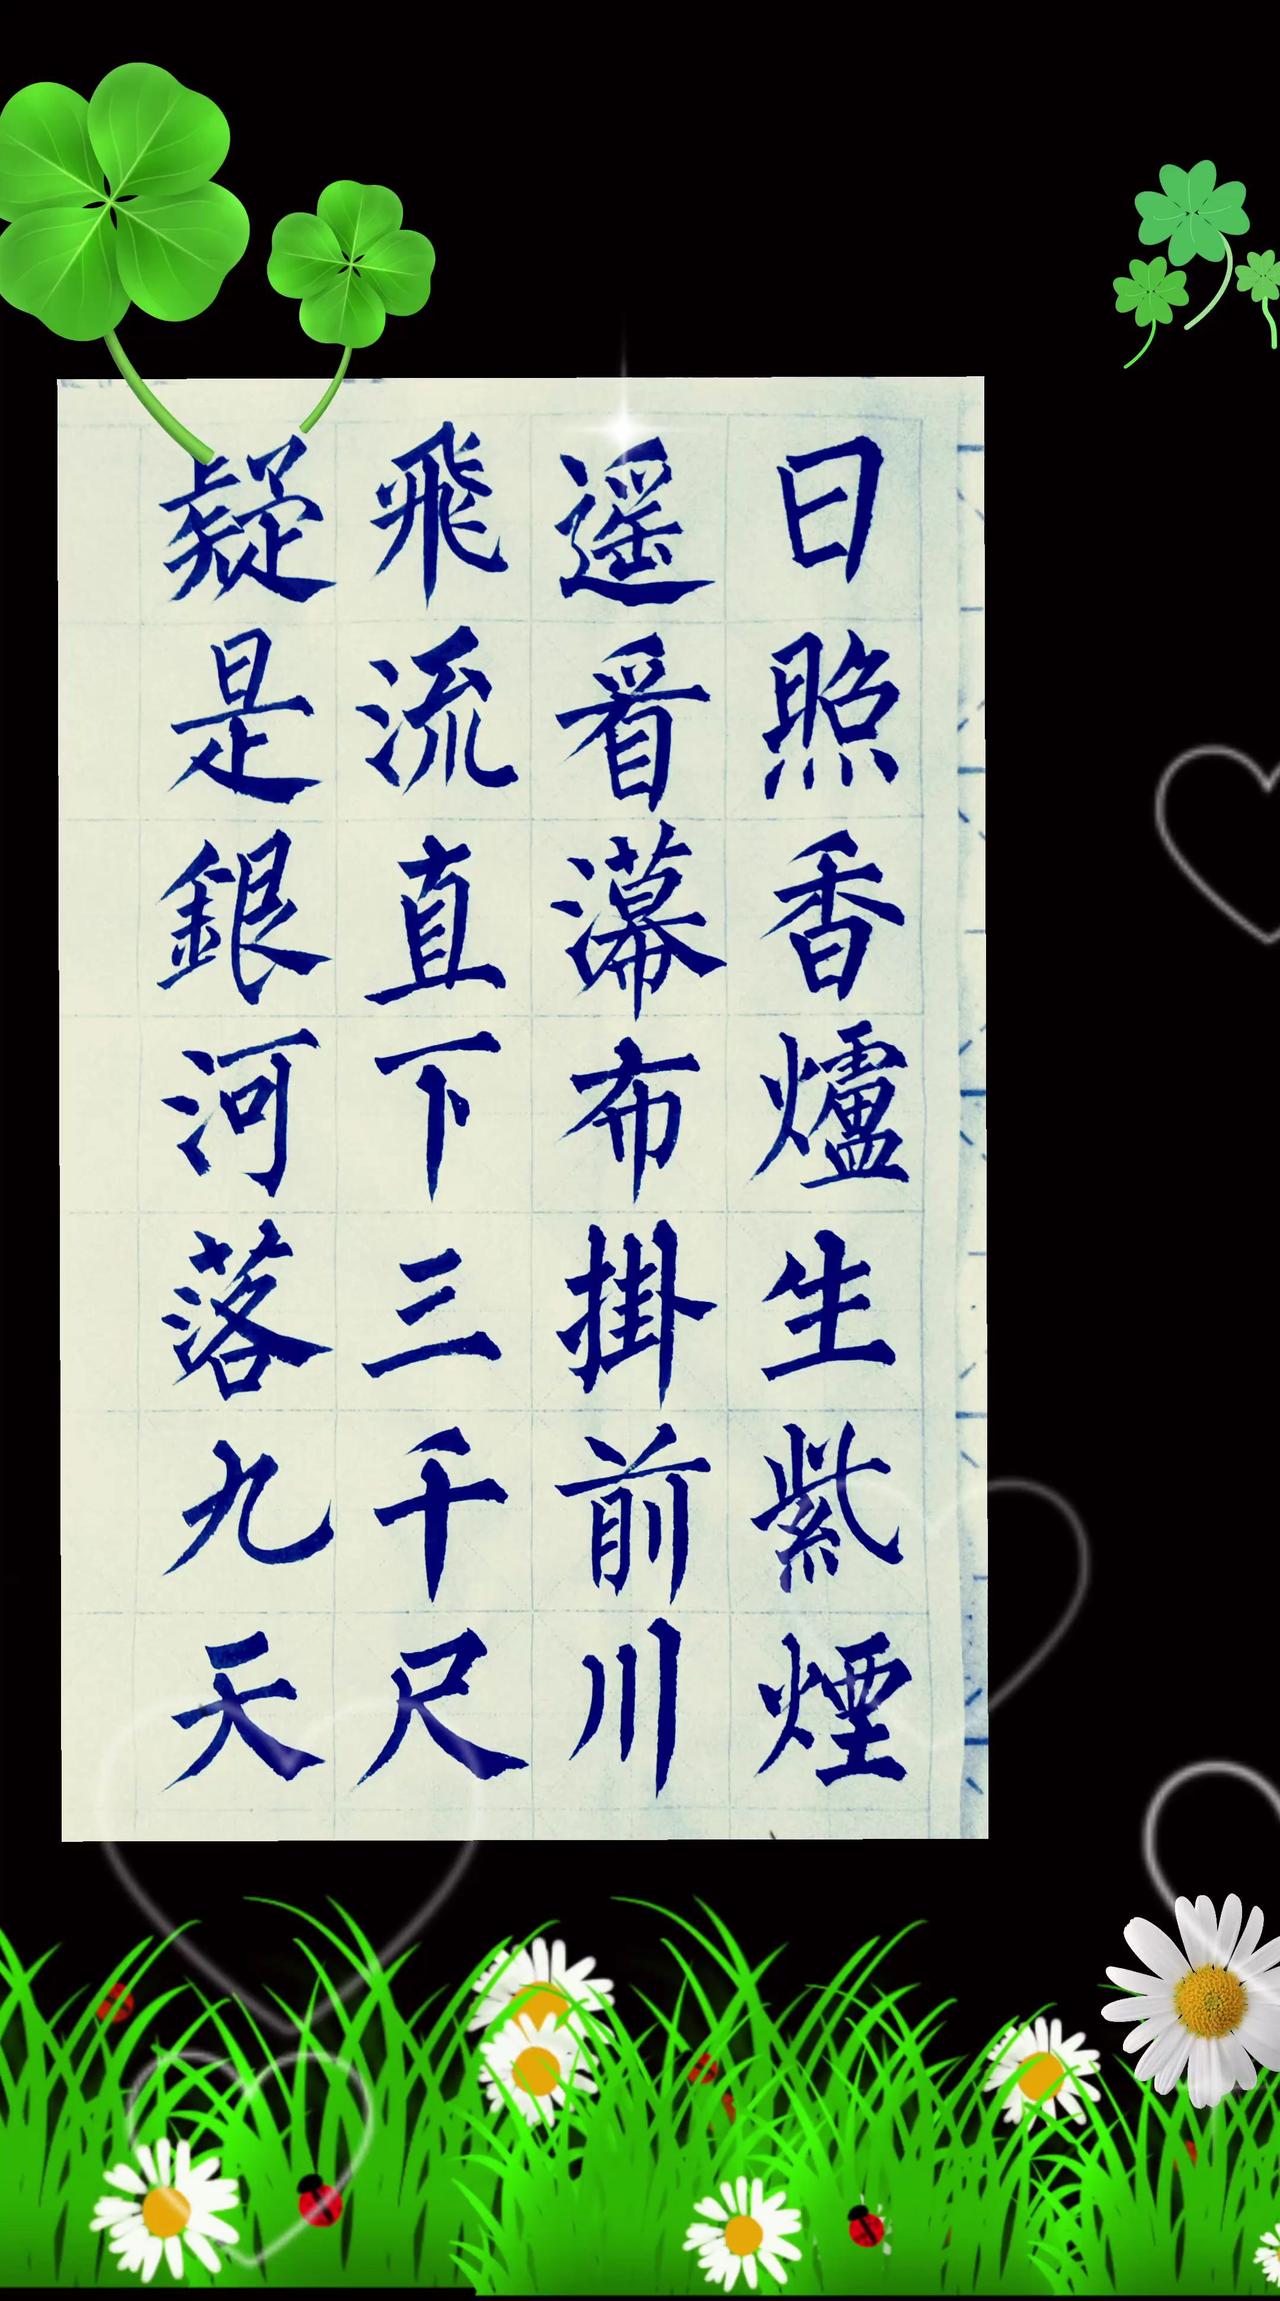 日照香爐生紫煙
遥看濗布掛前川
飛流直下三千尺
疑是銀河落九天